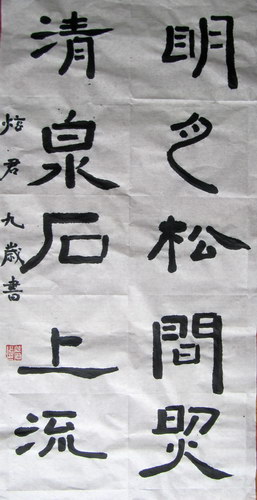 明月松間照
清泉石上流
君九歲書